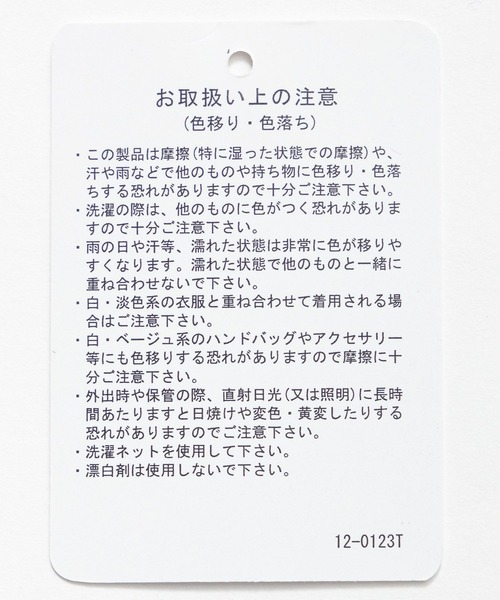 お取扱い上の注意
(色移り・色落ち)
・この製品は摩擦(特に湿った状態での摩擦)や、
汗や雨などで他のものや持ち物に色移り・色落
ちする恐れがありますので十分ご注意下さい。
・洗濯の際は、他のものに色がつく恐れがありま
すので十分ご注意下さい。
・雨の日や汗等、濡れた状態は非常に色が移りや
すくなります。濡れた状態で他のものと一緒に
重ね合わせないで下さい。
・白・淡色系の衣服と重ね合わせて着用される場
合はご注意下さい。
・白・ベージュ系のハンドバッグやアクセサリー
等にも色移りする恐れがありますので摩擦に十
分ご注意下さい。
・外出時や保管の際、直射日光(又は照明)に長時
間あたりますと日焼けや変色・黄変したりする
恐れがありますのでご注意下さい。
・洗濯ネットを使用して下さい。
・漂白剤は使用しないで下さい。
12-0123T